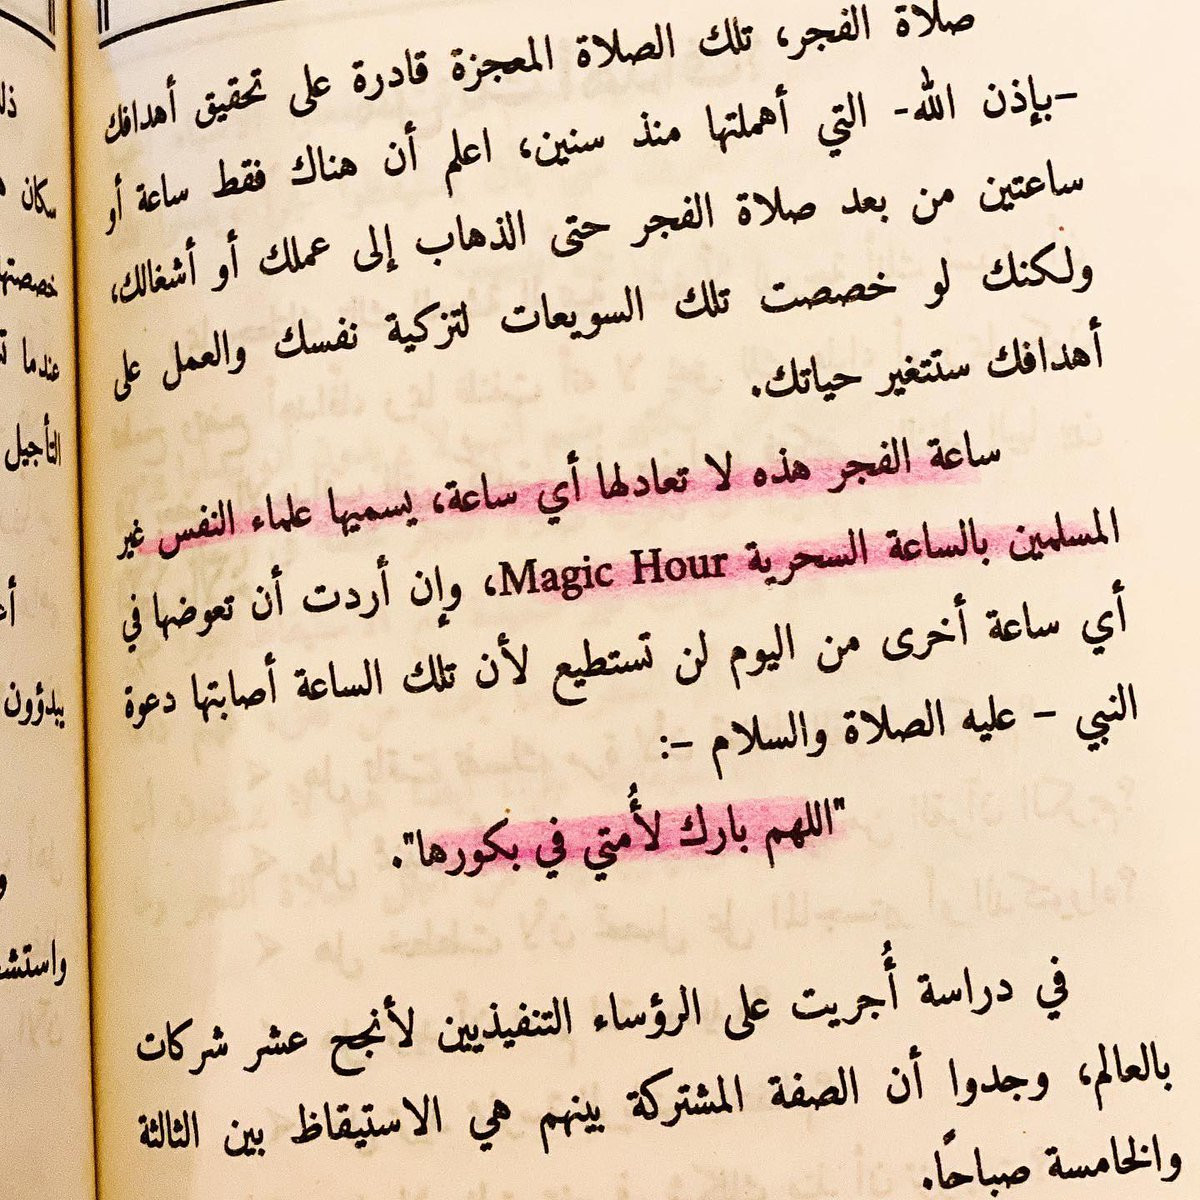 صلاة الفجر، تلك الصلاة المعجزة قادرة على تحقيق أهدافك
-بإذن الله- التي أهملتها منذ سنين، اعلم أن هناك فقط ساعة أو
ساعتين من بعد صلاة الفجر حتى الذهاب إلى عملك أو أشغالك،
ولكنك لو خصصت تلك السويعات لتزكية نفسك والعمل على
أهدافك ستتغير حياتك.
ساعة الفجر هذه لا تعادلها أي ساعة، يسميها علماء النفس غير
المسلمين بالساعة السحرية Magic Hour، وإن أردت أن تعوضها في
أي ساعة أخرى من اليوم لن تستطيع لأن تلك الساعة أصابتها دعوة
النبي - عليه الصلاة والسلام -:
"اللهم بارك لأُمتي في بكورها".
في دراسة أُجريت على الرؤساء التنفيذيين لأنجح عشر شركات
بالعالم، وجدوا أن الصفة المشتركة بينهم هي الاستيقاظ بين الثالثة
والخامسة صباحًا.
سكان
خصصتها
عندما
التأجيل
يبدؤون